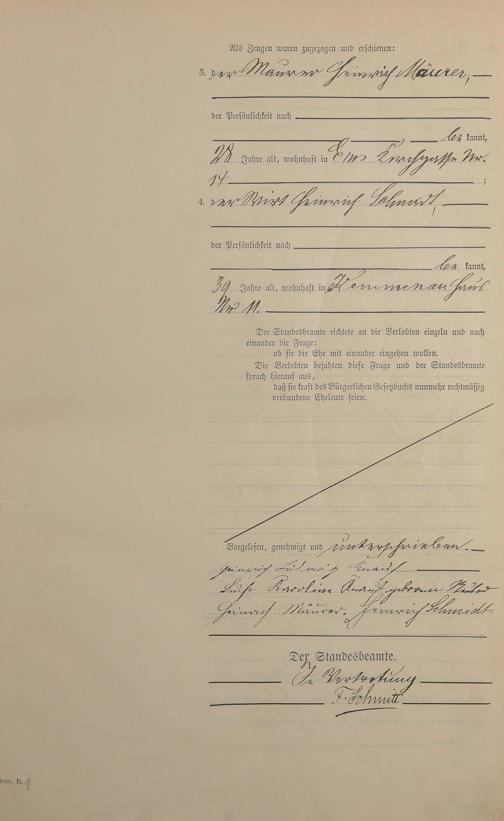 Als Zeugen waren zugezogen und erschienen:
3. der Maurer Heinrich Mäurer,
der Persönlichkeit nach
be kannt,
28 Jahre alt, wohnhaft in Ems Kirchgasse Nr.
14 ;
4. der Wirt Heinrich Schmidt,
der Persönlichkeit nach
be kannt,
39 Jahre alt, wohnhaft in Kemmenau Haus
Nr 11.
Der Standesbeamte richtete an die Verlobten einzeln und nach
einander die Frage:
ob sie die Ehe mit einander eingehen wollen.
Die Verlobten bejahten diese Frage und der Standesbeamte
sprach hierauf aus,
daß sie kraft des Bürgerlichen Gesetzbuchs nunmehr rechtmäßig
verbundene Eheleute seien.
Vorgelesen, genehmigt und unterschrieben.
Heinrich Ludwig Knauf
Karoline Knauf geboren
Heinrich Mäurer. Heinrich Schmidt.
Der Standesbeamte.
In Vertretung
F. Schmitt